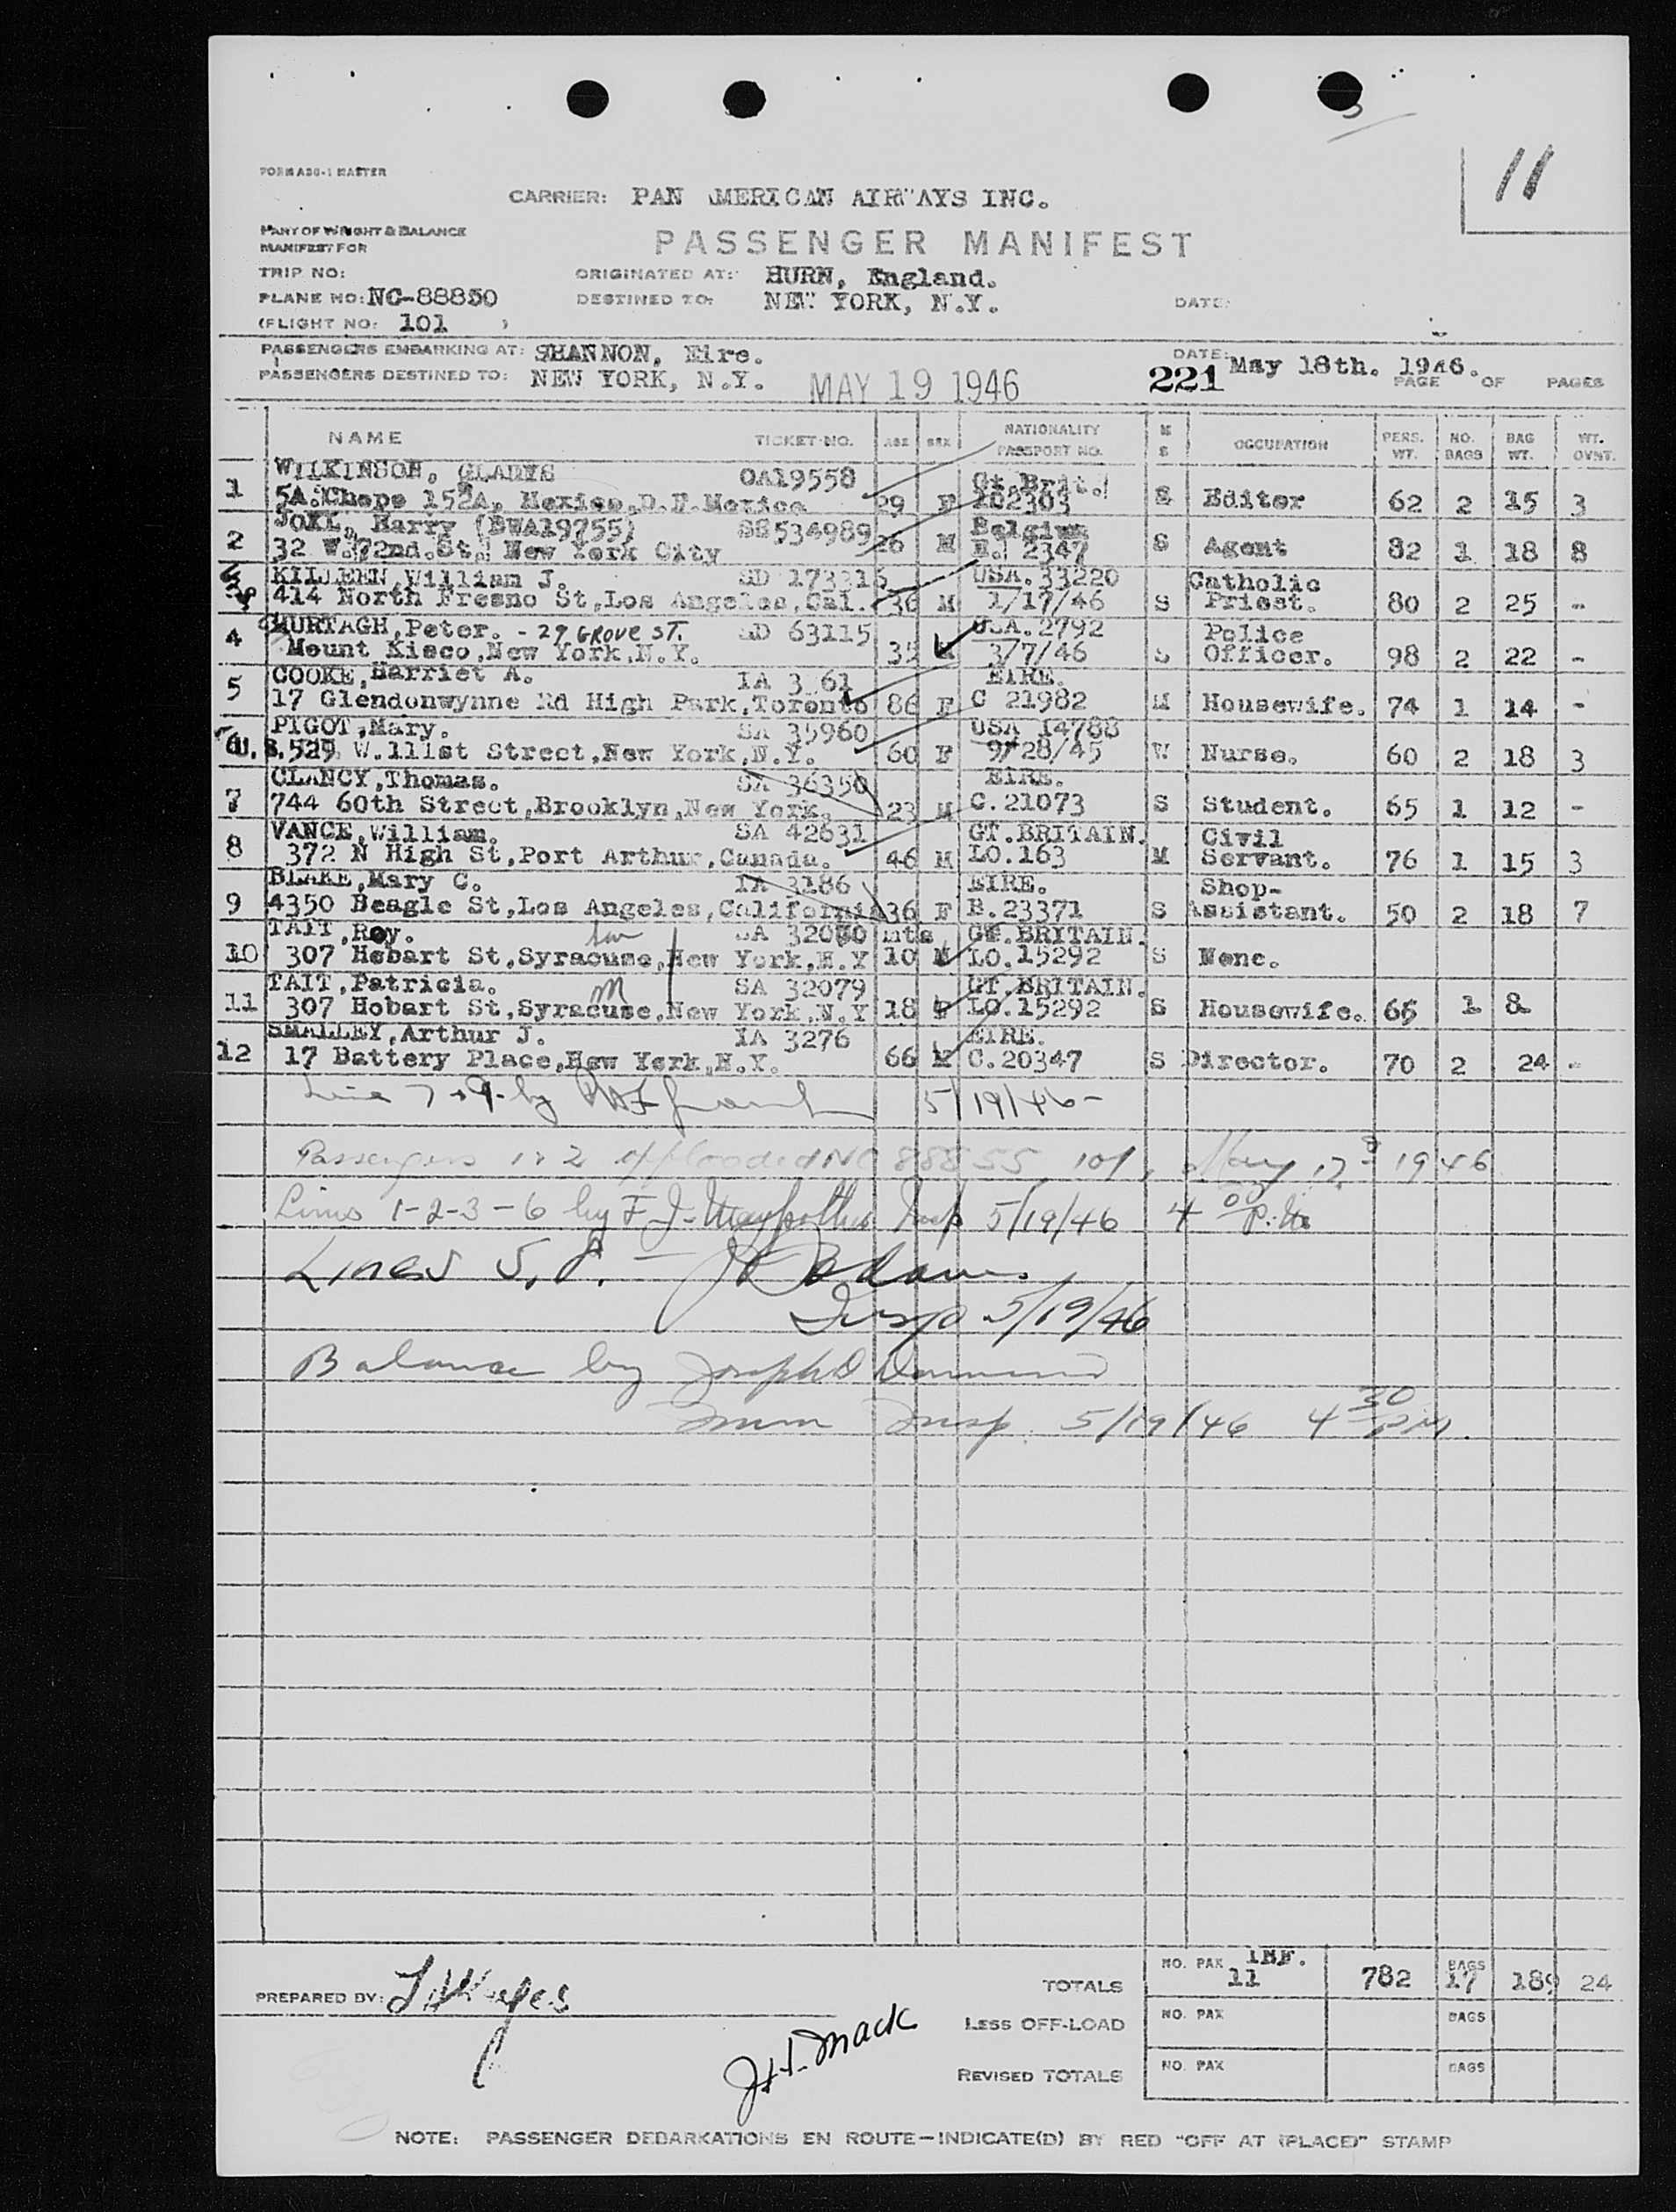 11
FORM A50-1 MASTER
CARRIER: PAN AMERICAN AIRWAYS INC.
PART OF WEIGHT & BALANCE
MANIFEST FOR
PASSENGER MANIFEST
TRIP NO:
ORIGINATED AT: HURN, England.
PLANE NO: NC-88850
DESTINED TO: NEW YORK, N.Y.
DATE:
(FLIGHT NO: 101 )
PASSENGERS EMBARKING AT: SHANNON, Eire.
DATE: May 18th. 1946.
PASSENGERS DESTINED TO: NEW YORK, N.Y. MAY 19 1946 221 PAGE OF PAGES
NAME TICKET NO. AGE SEX NATIONALITY PASSPORT NO. M S OCCUPATION PERS. WT. NO. BAGS BAG WT. WT. OVWT.
WILKINSON, GLADYS OA19558 Gt.Brit.
1 5A.Chope 152A, Mexico,D.F.Mexico 29 F 102303 S Editor 62 2 15 3
JOKL, Harry (BWA19755) SS534989 Belgium
2 32 W.72nd.St. New York City 26 M 2347 S Agent 82 1 18 8
KILLEEN,William J. SD 173316 USA.33220 Catholic
3 414 North Fresno St,Los Angeles,Cal. 36 M 1/17/46 S Priest. 80 2 25 -
MURTAGH,Peter. - 29 GROVE ST. SD 63115 USA.2792 Police
4 Mount Kisco,New York,N.Y. 35 3/7/46 S Officer. 98 2 22 -
COOKE,Harriet A. IA 3 61 EIRE.
5 17 Glendonwynne Rd High Park,Toronto 86 F C 21982 M Housewife. 74 1 14 -
PIGOT,Mary. SA 35960 USA 14788
6 U.S. 529 W.111st Street,New York,N.Y. 60 F 9/28/45 W Nurse. 60 2 18 3
CLANCY,Thomas. SA 36350 EIRE.
7 744 60th Street,Brooklyn,New York. 23 M C.21073 S Student. 65 1 12 -
VANCE,William. SA 42631 GT.BRITAIN. Civil
8 372 N High St,Port Arthur,Canada. 46 M LO.163 M Servant. 76 1 15 3
BLAKE,Mary C. IA 3186 EIRE. Shop-
9 4350 Beagle St,Los Angeles,California 36 F B.23371 S Assistant. 50 2 18 7
TAIT,Roy. SA 32080 mts GT.BRITAIN.
10 307 Hobart St,Syracuse,New York,N.Y 10 M LO.15292 S None.
TAIT,Patricia. SA 32079 GT.BRITAIN.
11 307 Hobart St,Syracuse,New York,N.Y 18 F LO.15292 S Housewife. 65 1 8
SMALLEY,Arthur J. IA 3276 EIRE.
12 17 Battery Place,New York,N.Y. 66 M C.20347 S Director. 70 2 24 -
Line 7 + 9 - by 5/19/46 -
Passengers 1 & 2 offloaded NC 88855 101, May 17 1946
Lines 1-2-3-6 by F. J. Insp 5/19/46 4 00 P.M.
Lines 5, 8. - Adams
Insp 5/19/46
Balance by Joseph D
Imm Insp. 5/19/46 4 30 PM.
TOTALS NO. PAX 11 INF. 782 BAGS 17 189 24
PREPARED BY:
LESS OFF-LOAD NO. PAX BAGS
J.H. Mack
REVISED TOTALS NO. PAX BAGS
NOTE: PASSENGER DEBARKATIONS EN ROUTE—INDICATE(D) BY RED "OFF AT (PLACE)" STAMP